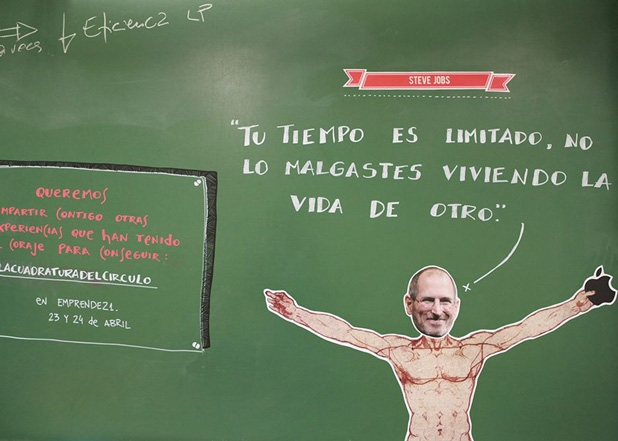 Eficienc
LP
STEVE JOBS
"TU TIEMPO ES LIMITADO, NO
LO MALGASTES VIVIENDO LA
VIDA DE OTRO".
QUEREMOS
MPARTIR CONTIGO OTRAS
XPERIENCIAS QUE HAN TENIDO
L CORAJE PARA CONSEGUIR:
LACUADRATURADELCIRCULO
en EMPRENDE21.
23 Y 24 de ABRIL